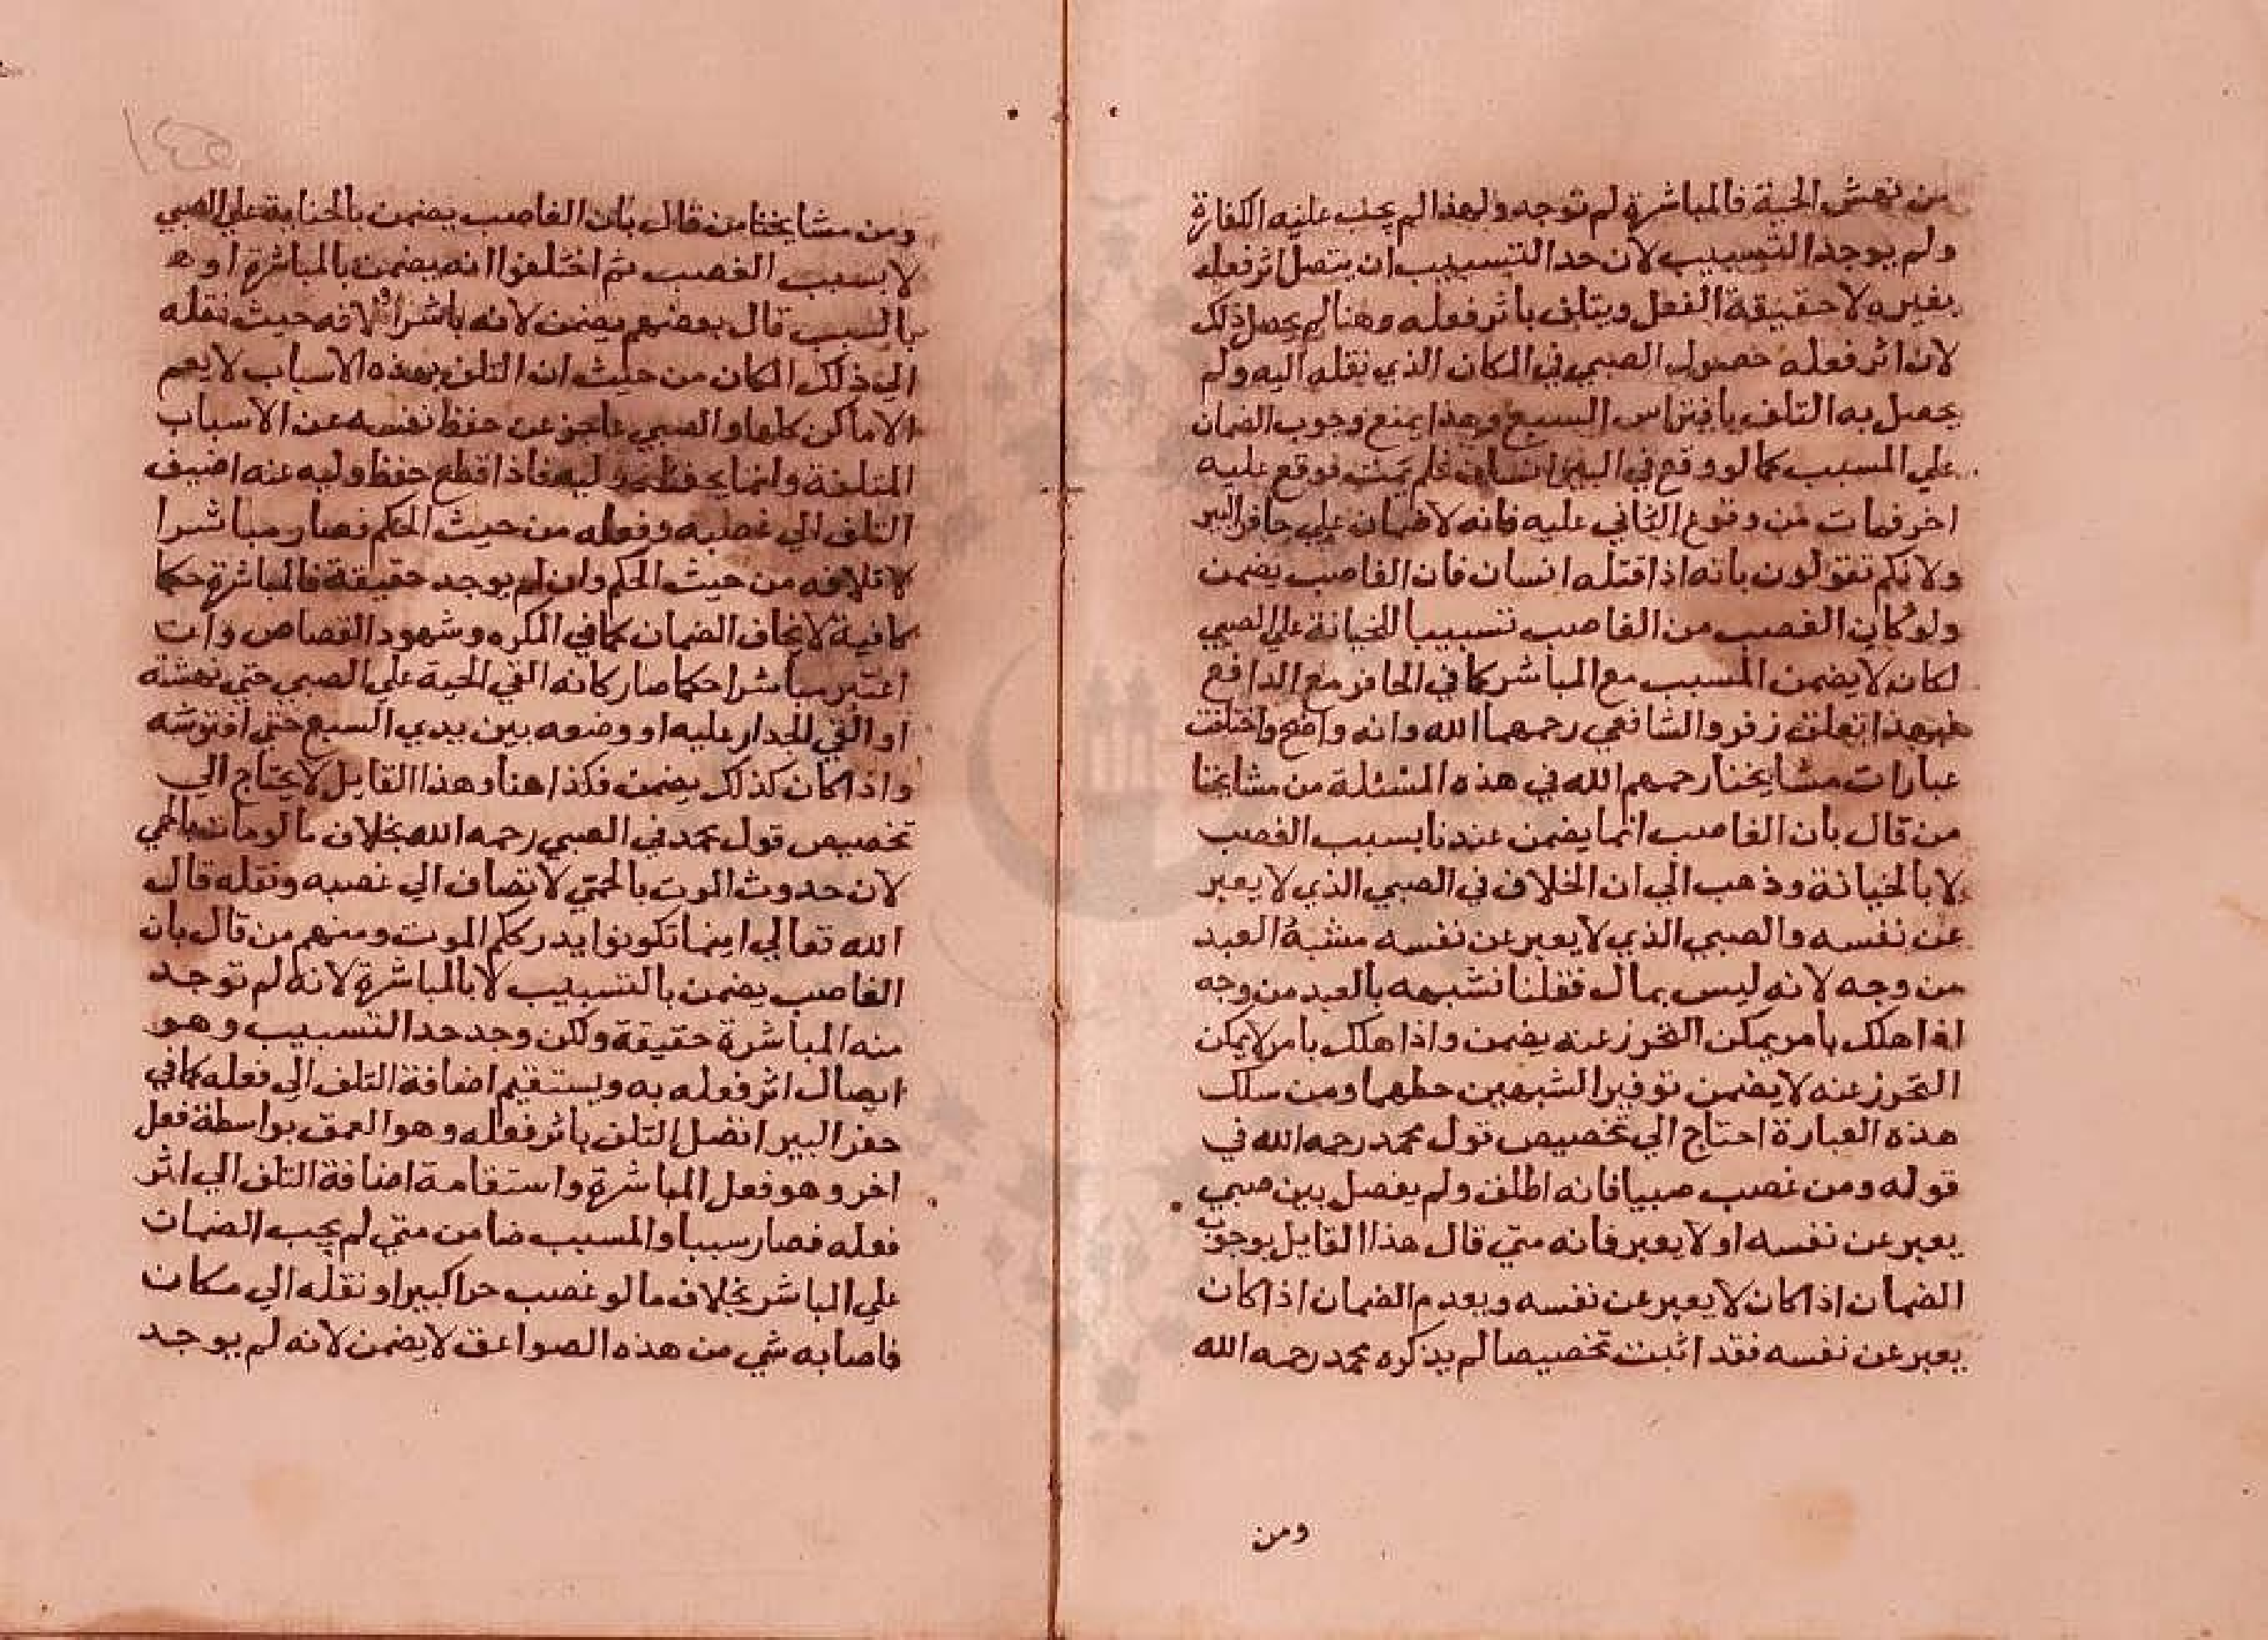 من نهش الحية فالمباشرة لم توجد ولهذا لم يجب عليه الكفارة
ولم يوجد التسبيب لان حد التسبيب ان يتصل اثر فعله
بغيره لا حقيقة الفعل ويتلف باثر فعله وهنا لم يحصل ذلك
لان اثر فعله حصول الصبي في المكان الذي نقله اليه ولم
يحصل به التلف بافتراس السبع وهذا يمنع وجوب الضمان
علي المسبب كما لو وقع في البير انسان فلم يمت فوقع عليه
اخر فمات من وقوع الثاني عليه فانه لا ضمان علي حافر البير
ولانكم تقولون بانه اذا قتله انسان فان الغاصب يضمن
ولو كان الغصب من الغاصب تسبيبا للخيانة علي الصبي
لكان لا يضمن المسبب مع المباشر كما في الحافر مع الدافع
فبهذا تعلق زفر والشافعي رحمهما الله وانه واضح واختلفت
عبارات مشايخنا رحمهم الله في هذه المسئلة من مشايخنا
من قال بان الغاصب انما يضمن عندنا بسبب الغصب
لا بالخيانة وذهب الي ان الخلاف في الصبي الذي لا يعبر
عن نفسه والصبي الذي لا يعبر عن نفسه مشبه العبد
من وجه لانه ليس بمال فقلنا نشبهه بالعبد من وجه
اذا هلك بامر يمكن التحرز عنه يضمن واذا هلك بامر لا يمكن
التحرز عنه لا يضمن توفيرا لشبهين حظهما ومن سلك
هذه العبارة احتاج الي تخصيص قول محمد رحمه الله في
قوله ومن غصب صبيا فانه اطلق ولم يفصل بين صبي
يعبر عن نفسه او لا يعبر فانه متي قال هذا القايل بوجوب
الضمان اذا كان لا يعبر عن نفسه وبعدم الضمان اذا كان
يعبر عن نفسه فقد اثبت تخصيصا لم يذكره محمد رحمه الله
ومن
ومن مشايخنا من قال بان الغاصب يضمن بالجناية علي الصبي
لا بسبب الغصب ثم اختلفوا انه يضمن بالمباشرة او
بالسبب قال بعضهم يضمن لانه باشر لانه حيث نقله
الي ذلك المكان من حيث ان التلف بهذه الاسباب لا يعم
الاماكن كلها والصبي عاجز عن حفظ نفسه عن الاسباب
المتلفة وانما يحفظه وليه فاذا قطع حفظ وليه عنه اضيف
التلف الي غصبه وفعله من حيث الحكم فصار مباشرا
لاتلافه من حيث الحكم وان لم يوجد حقيقة فالمباشرة حكما
كافية لايجاف الضمان كما في المكره وشهود القصاص وان
اعتبر مباشرا حكما صار كانه القي الحية علي الصبي حتي نهشته
او القي الجدار عليه او وضعه بين يدي السبع حتي افترسه
واذا كان كذلك يضمن فكذا هنا وهذا القايل لا يحتاج الي
تخصيص قول محمد في الصبي رحمه الله بخلاف ما لو مات بالحمي
لان حدوث الموت بالحمي لا يضاف الي غصبه ونقله قال
الله تعالي اينما تكونوا يدرككم الموت ومنهم من قال بان
الغاصب يضمن بالتسبيب لا بالمباشرة لانه لم توجد
منه المباشرة حقيقة ولكن وجد حد التسبيب وهو
ايصال اثر فعله به ويستقيم اضافة التلف الي فعله كما في
حفر البير اتصل التلف باثر فعله وهو العمق بواسطة فعل
اخر وهو فعل المباشرة واستقامة اضافة التلف الي اثر
فعله فصار سببا والمسبب ضامن متي لم يجب الضمان
علي المباشر بخلاف ما لو غصب حرا كبيرا ونقله الي مكان
فاصابه شي من هذه الصواعق لا يضمن لانه لم يوجد